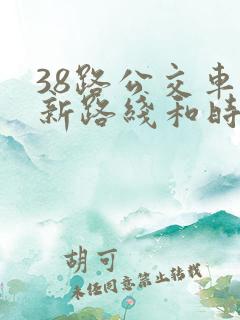 38路公交车
新路綫和时
胡可
未经同意禁止转载